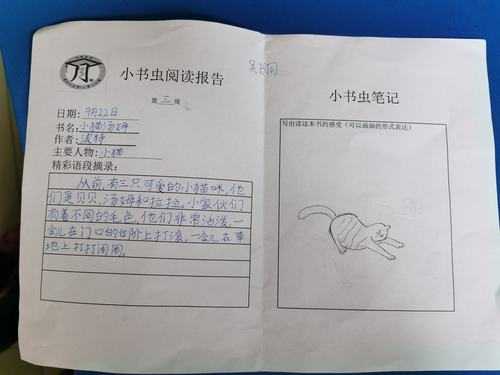 小书虫阅读报告
第 三 周
日期：9月22日
书名：小猫汤姆
作者：波特
主要人物：小猫
精彩语段摘录：
从前，有三只可爱的小猫咪，他
们是贝贝，汤姆和拉拉，小家伙们
有着不同的毛色，他们非常活泼，一
会儿在门口的台阶上打滚，一会儿在草
地上打打闹闹。
小书虫笔记
写出读这本书的感受（可以画画的形式表达）